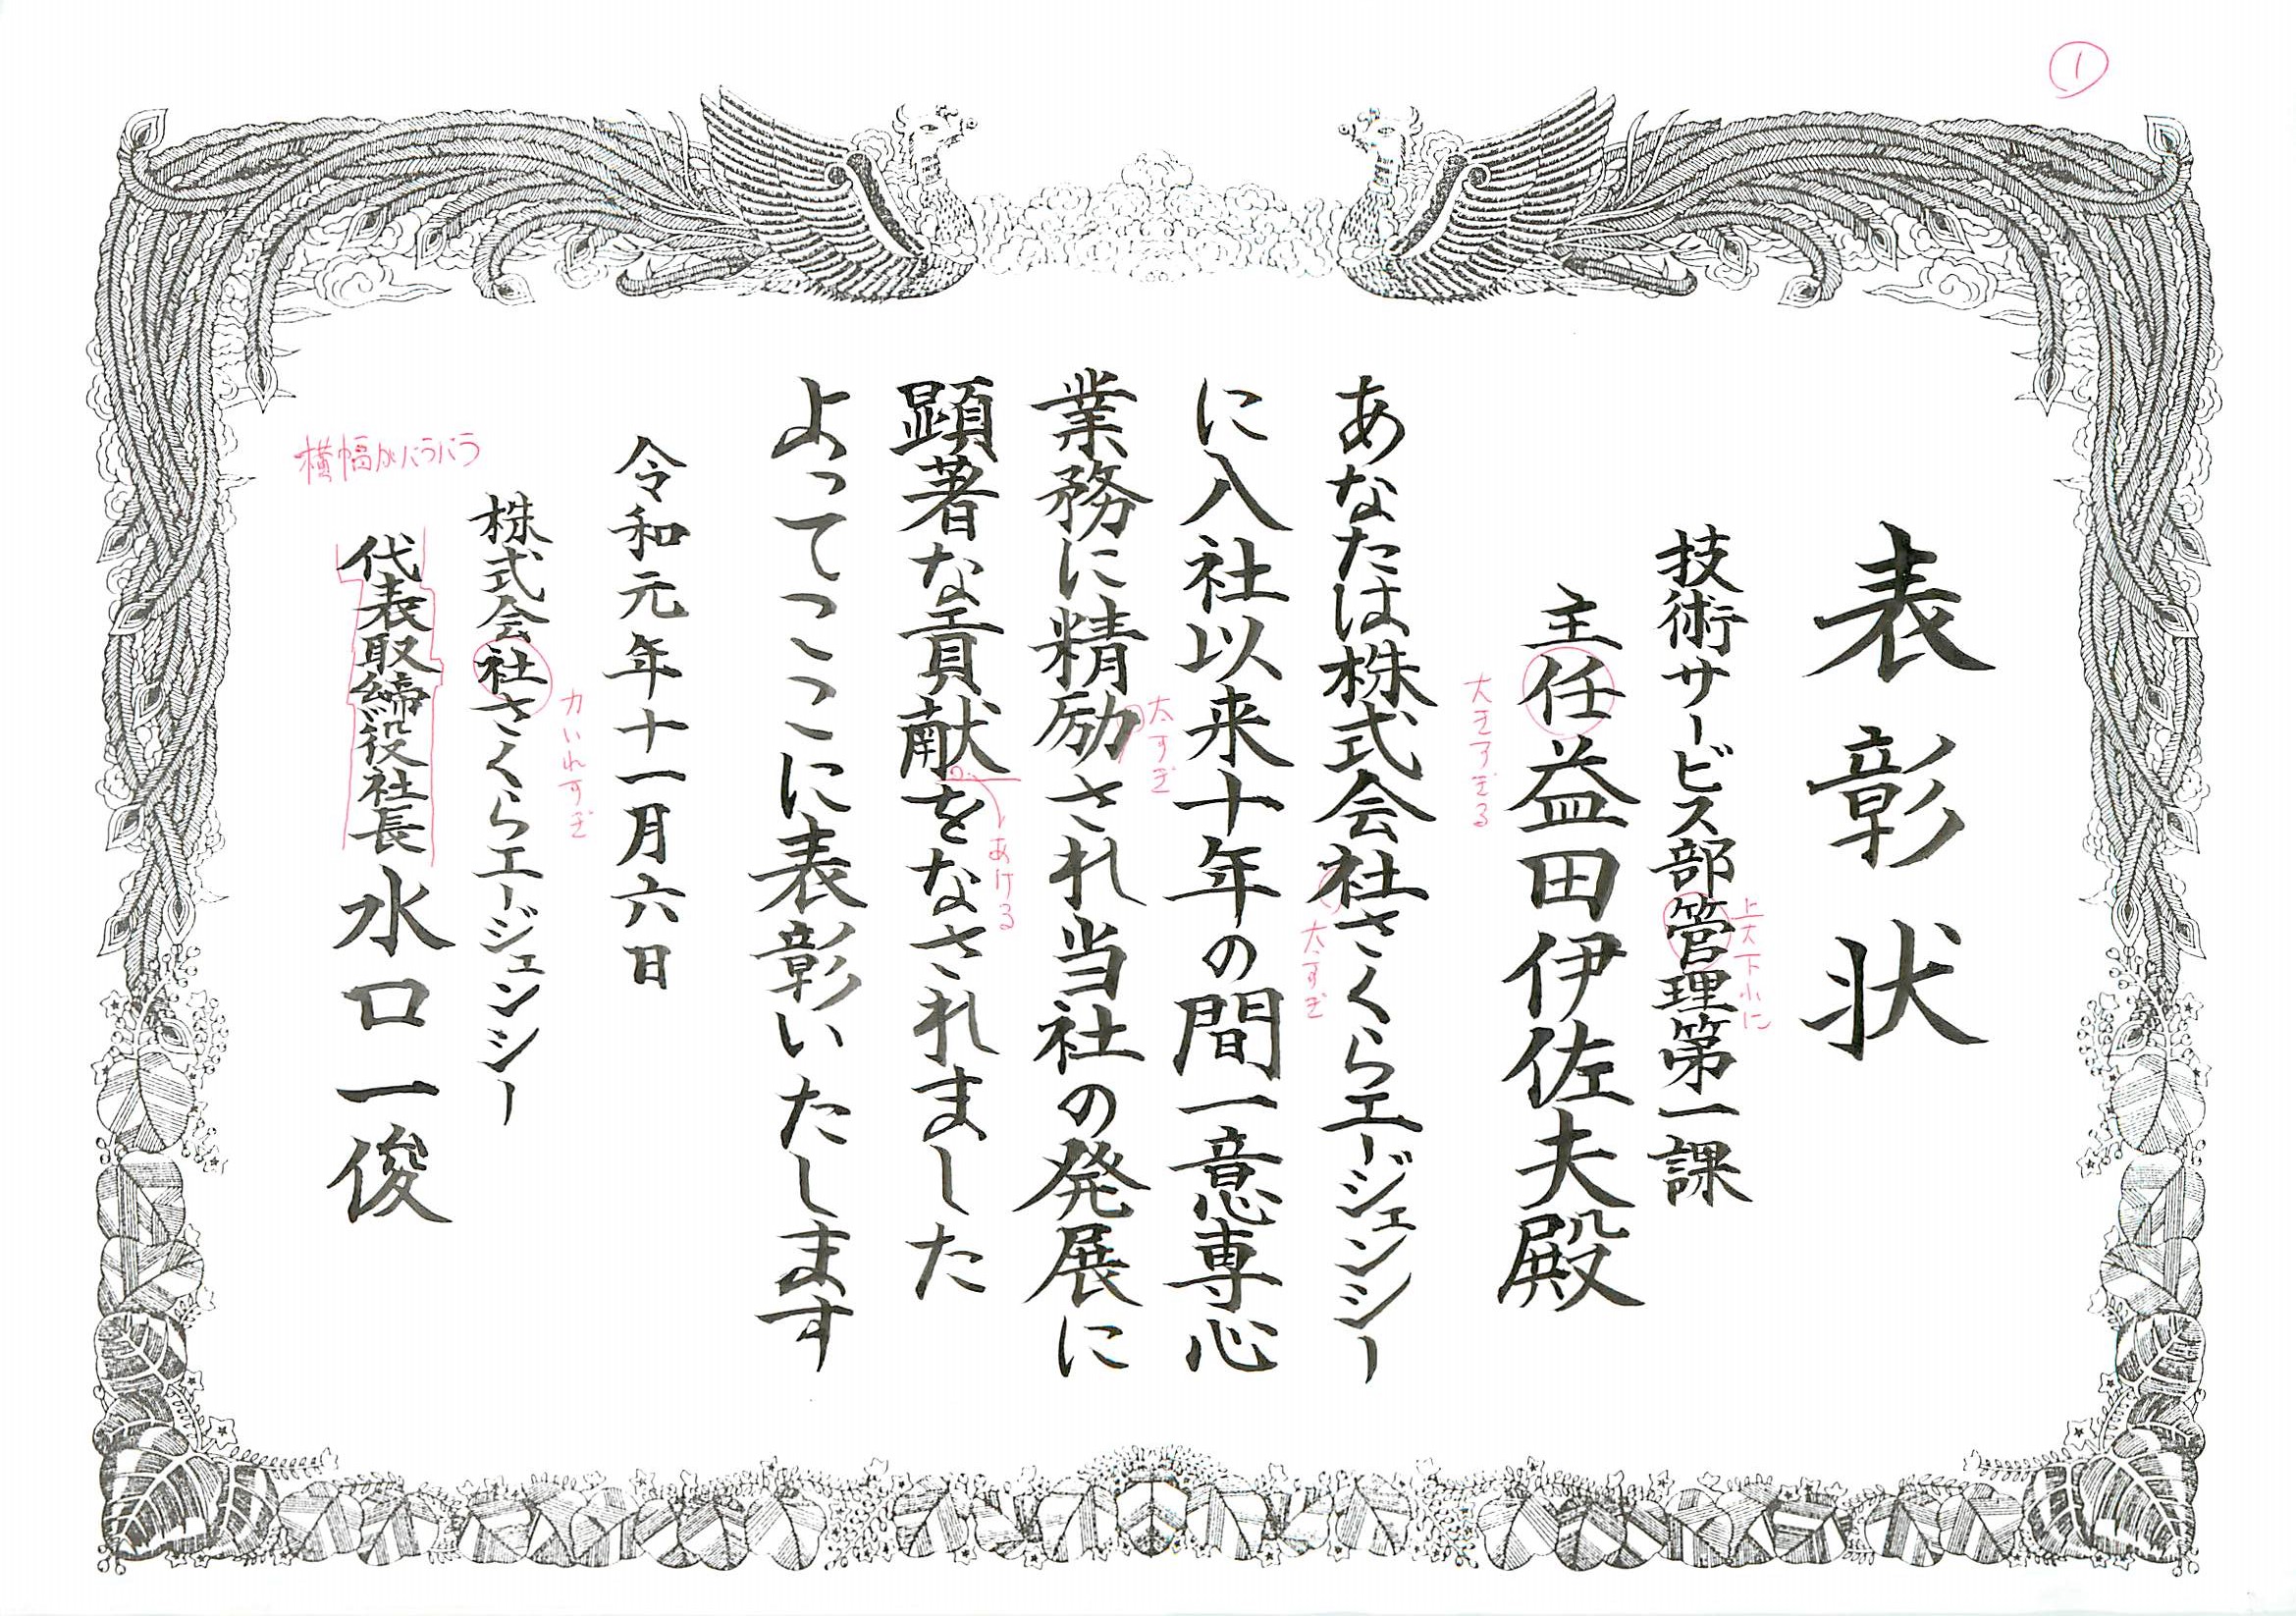 ①
表彰状
技術サービス部管理第一課
上大下小に
主任益田伊佐夫殿
大きすぎる
あなたは株式会社さくらエージェンシー
太すぎ
に入社以来十年の間一意専心
業務に精励され当社の発展に
太すぎ
顕著な貢献をなされました
あける
よってここに表彰いたします
令和元年十一月六日
株式会社さくらエージェンシー
力いれすぎ
代表取締役社長水口一俊
横幅がバラバラ